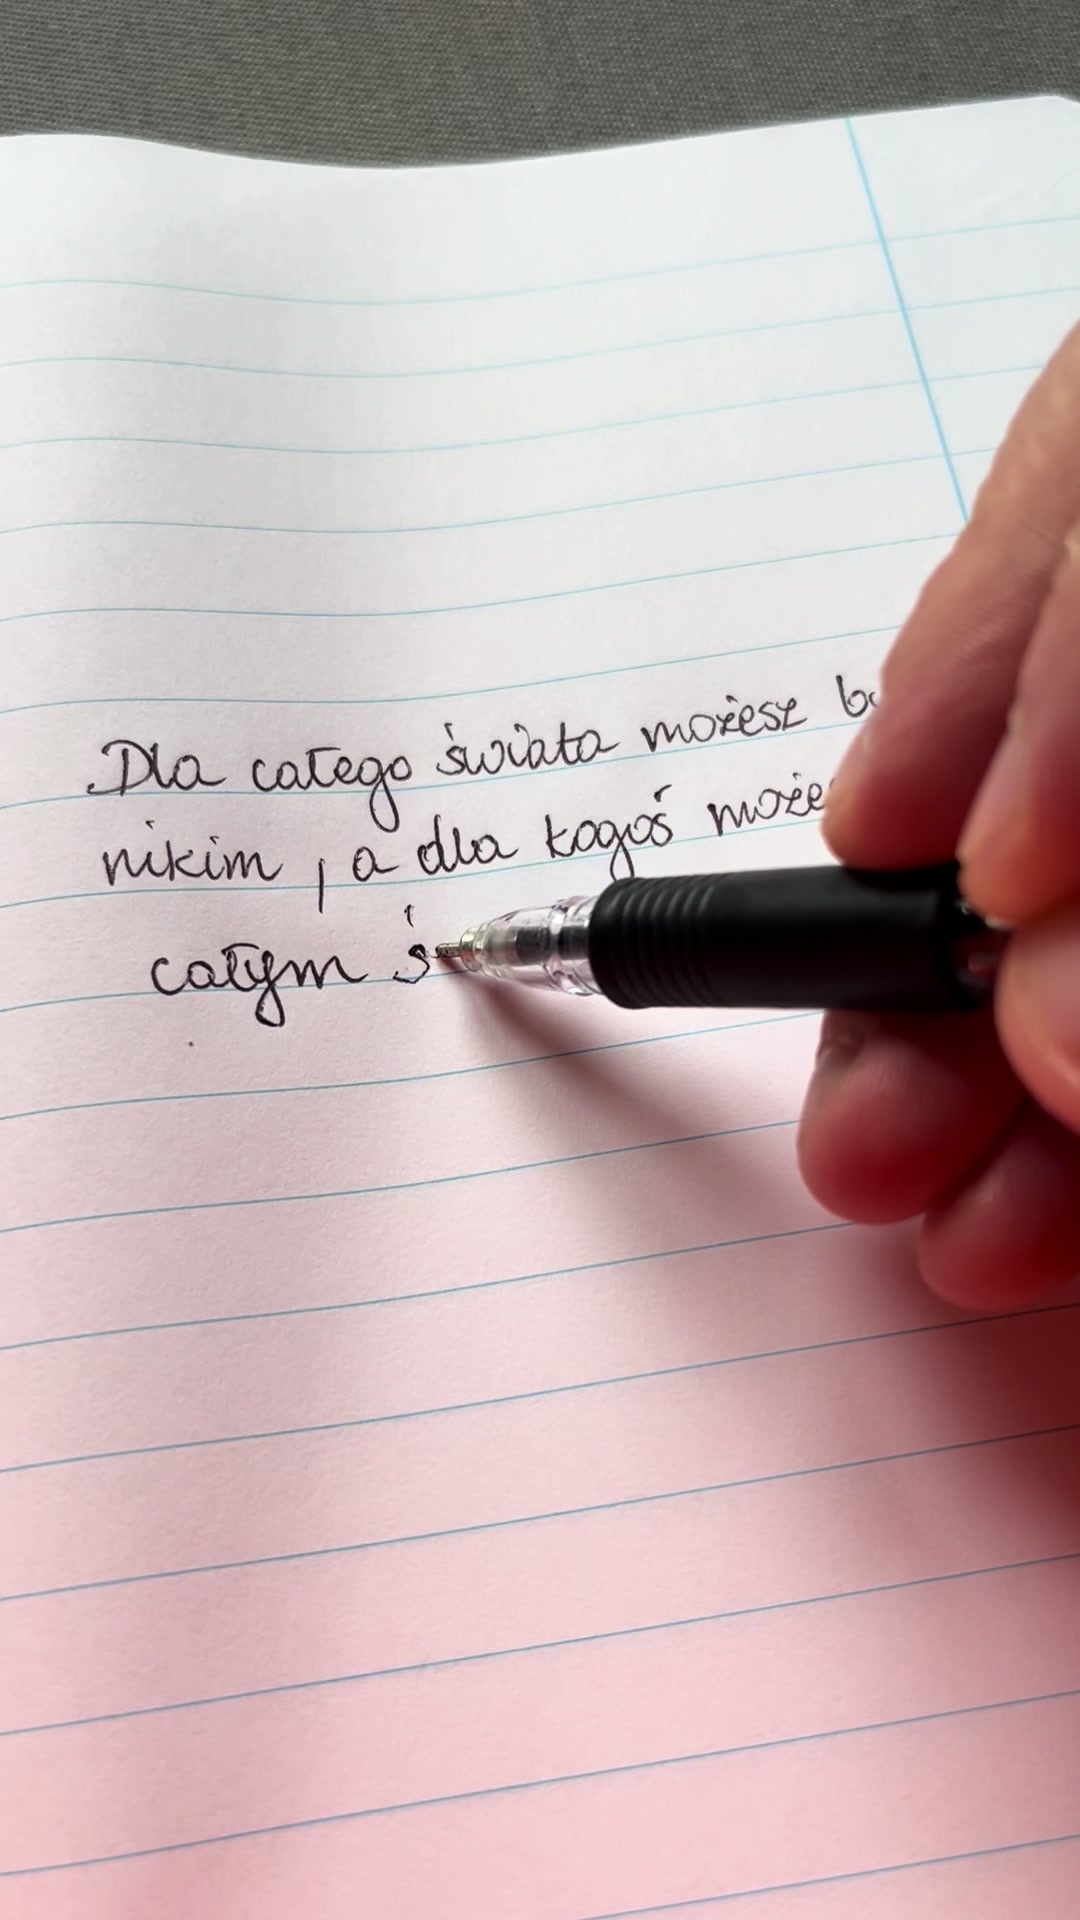 Dla całego świata możesz
nikim, a dla kogoś
całym